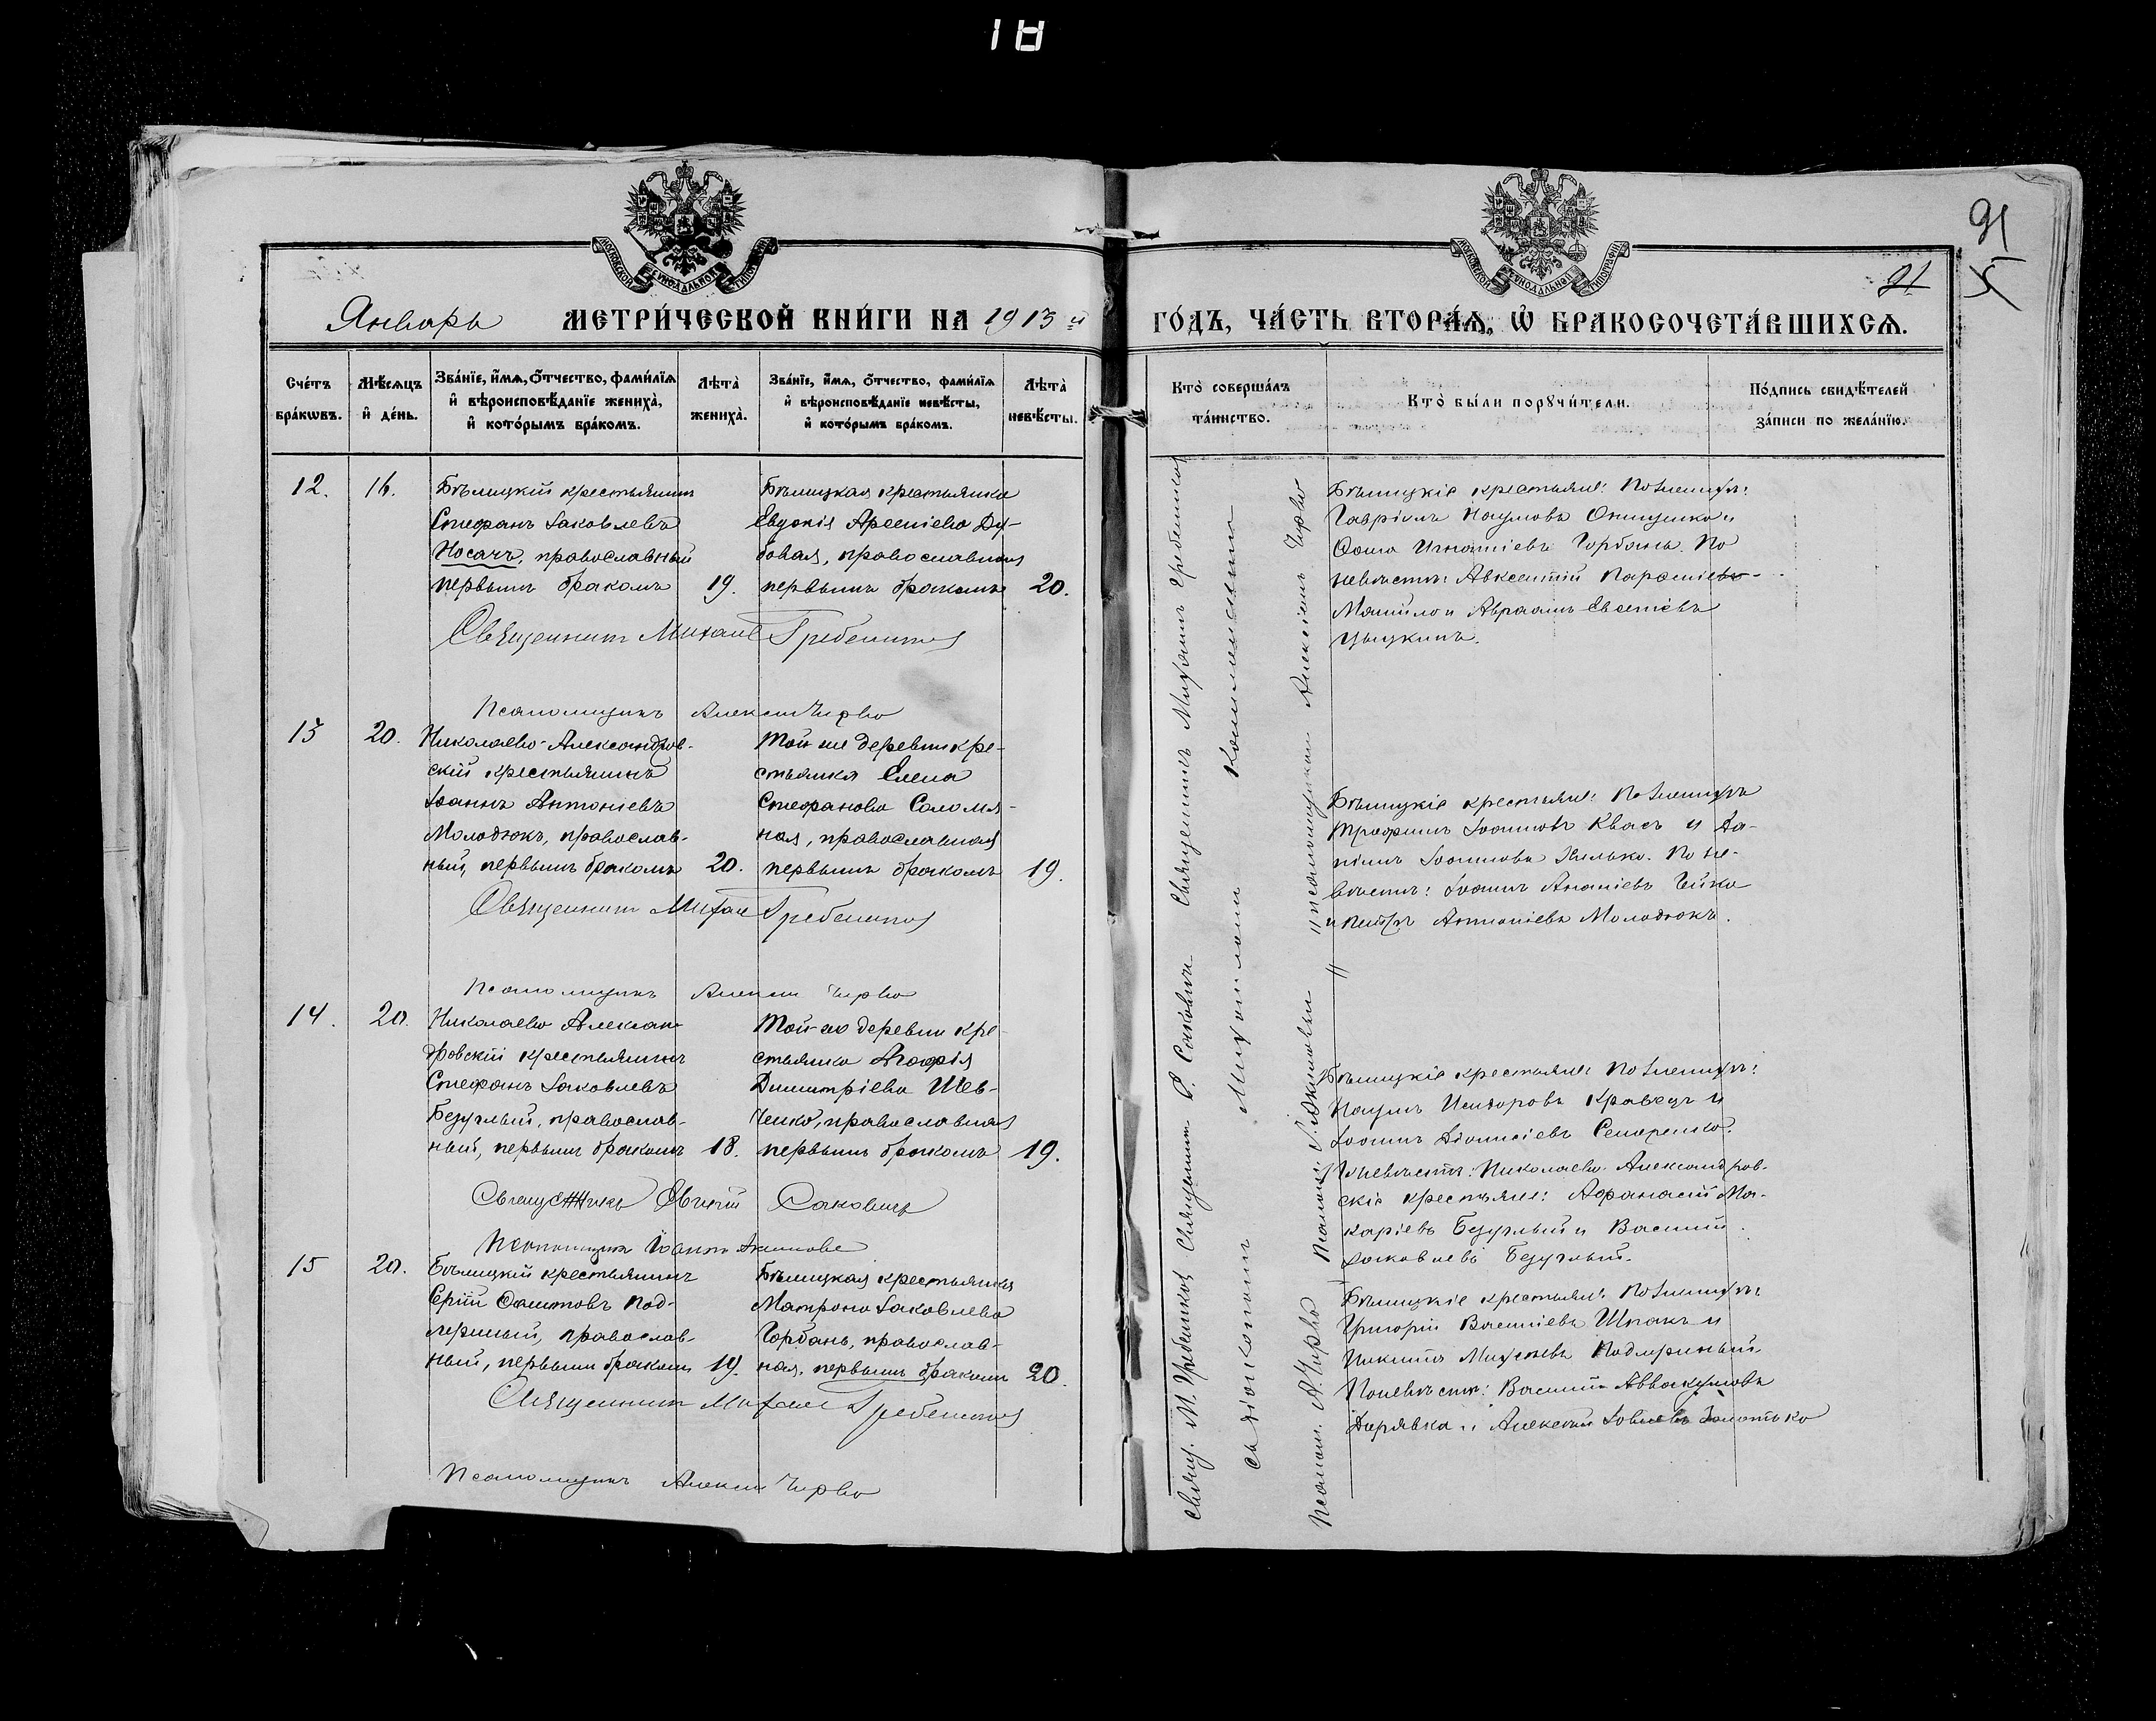 18
91
5
91
Январь МЕТРИ́ЧЕСКОЙ КНИ́ГИ НА 1913 й ГО́ДЪ, ЧА́СТЬ ВТОРА́Я, Ѡ҆ БРАКОСОЧЕТА́ВШИХСЯ.
Сче́тъ бра́кѡвъ.
Мѣ́сяцъ и҆ де́нь.
Зва́нїе, и҆́мя, ѻ҆́тчество, фами́лїя и҆ вѣроисповѣ́данїе жениха̀, и҆ кото́рымъ бра́комъ.
Лѣ́та̀ жениха̀.
Зва́нїе, и҆́мя, ѻ҆́тчество, фами́лїя и҆ вѣроисповѣ́данїе невѣ́сты, и҆ кото́рымъ бра́комъ.
Лѣ́та̀ невѣ́сты.
Кто̀ соверша́лъ та́инство.
Кто̀ бы́ли порꙋчи́тели.
По́дпись свидѣ́телей за́писи по жела́нїю.
12.
16.
Бѣлицкій крестьянинъ
Стефанъ Іаковлевъ
Носачъ, православный
первымъ бракомъ
19.
Бѣлицкая крестьянка
Евдокія Арсеніева Ду-
бовая, православная
первымъ бракомъ
20.
Бѣлицкіе крестьяне: По женихѣ:
Гавріилъ Наумовъ Онищенко и
Ѳома Игнатіевъ Горбань. По
невѣстѣ: Авксентій Парѳеніевъ
Манило и Авраамъ Евсеніевъ
Цыцкинъ.
Священникъ Михаил Гребенников
Псаломщикъ Алексій Чирво
13
20.
Николаево-Александров-
скій крестьянинъ
Іоаннъ Антоніевъ
Молодюкъ, православ-
ный, первымъ бракомъ
20.
Той же деревни кре-
стьянка Елена
Стефанова Соломя-
ная, православная
первымъ бракомъ
19.
Бѣлицкіе крестьяне: По женихѣ
Трофимъ Іоанновъ Квасъ и Да-
ніилъ Іоанновъ Хилько. По не-
вѣстѣ: Іоаннъ Ананіевъ Чейка
и Петръ Антоніевъ Молодюкъ.
Священникъ Михаил Гребенников
Псаломщикъ Алексій Чирво
14.
20.
Николаево Алексан-
дровскій крестьянинъ
Стефанъ Іаковлевъ
Безуглый, православ-
ный, первымъ бракомъ
18.
Той же деревни кре-
стьянка Агафія
Димитріева Шев-
ченко, православная
первымъ бракомъ
19.
Бѣлицкіе крестьяне: По женихѣ:
Наумъ Исидоровъ Кравецъ и
Іоаннъ Діонисіевъ Семеренко.
По невѣстѣ: Николаево-Александров-
скіе крестьяне: Аѳанасій Ма-
каріевъ Безуглый и Василій
Іаковлевъ Безуглый.
Священникъ Евгеній Саковичъ
Псаломщикъ Іоаннъ Акимовъ
15
20.
Бѣлицкій крестьянинъ
Сергій Сѵитовъ Под-
лериный, православ-
ный, первымъ бракомъ
19.
Бѣлицкая крестьянка
Матрона Іаковлева
Горбань, православ-
ная, первымъ бракомъ
20.
Бѣлицкіе крестьяне: По женихѣ:
Григорій Василіевъ Шпакъ и
Никита Михеевъ Подлериный.
По невѣстѣ: Василій Аввакумовъ
Дирявка и Алексѣй Іовлевъ Золотько
Священникъ Михаил Гребенников
Псаломщикъ Алексій Чирво
Свящ. М. Гребенников Священникъ Е. Саковичъ Священникъ Михаилъ Гребенников
съ діакономъ Михаиломъ
Псалом. А. Чирво Псалом. І. Акимовъ и псаломщикъ Алексіемъ Чирво